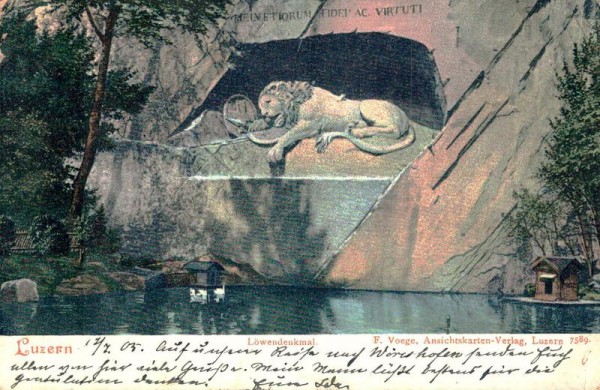 HELVETIORUM FIDEI AC VIRTUTI
Löwendenkmal.
F. Voege, Ansichtskarten-Verlag, Luzern 7589.
Luzern 12/7 05. Auf unserer Reise nach Wörishofen senden Euch
allen von hier viele Grüße. Mein Mann läßt bestens für die
Gratulation danken. Eure Ida